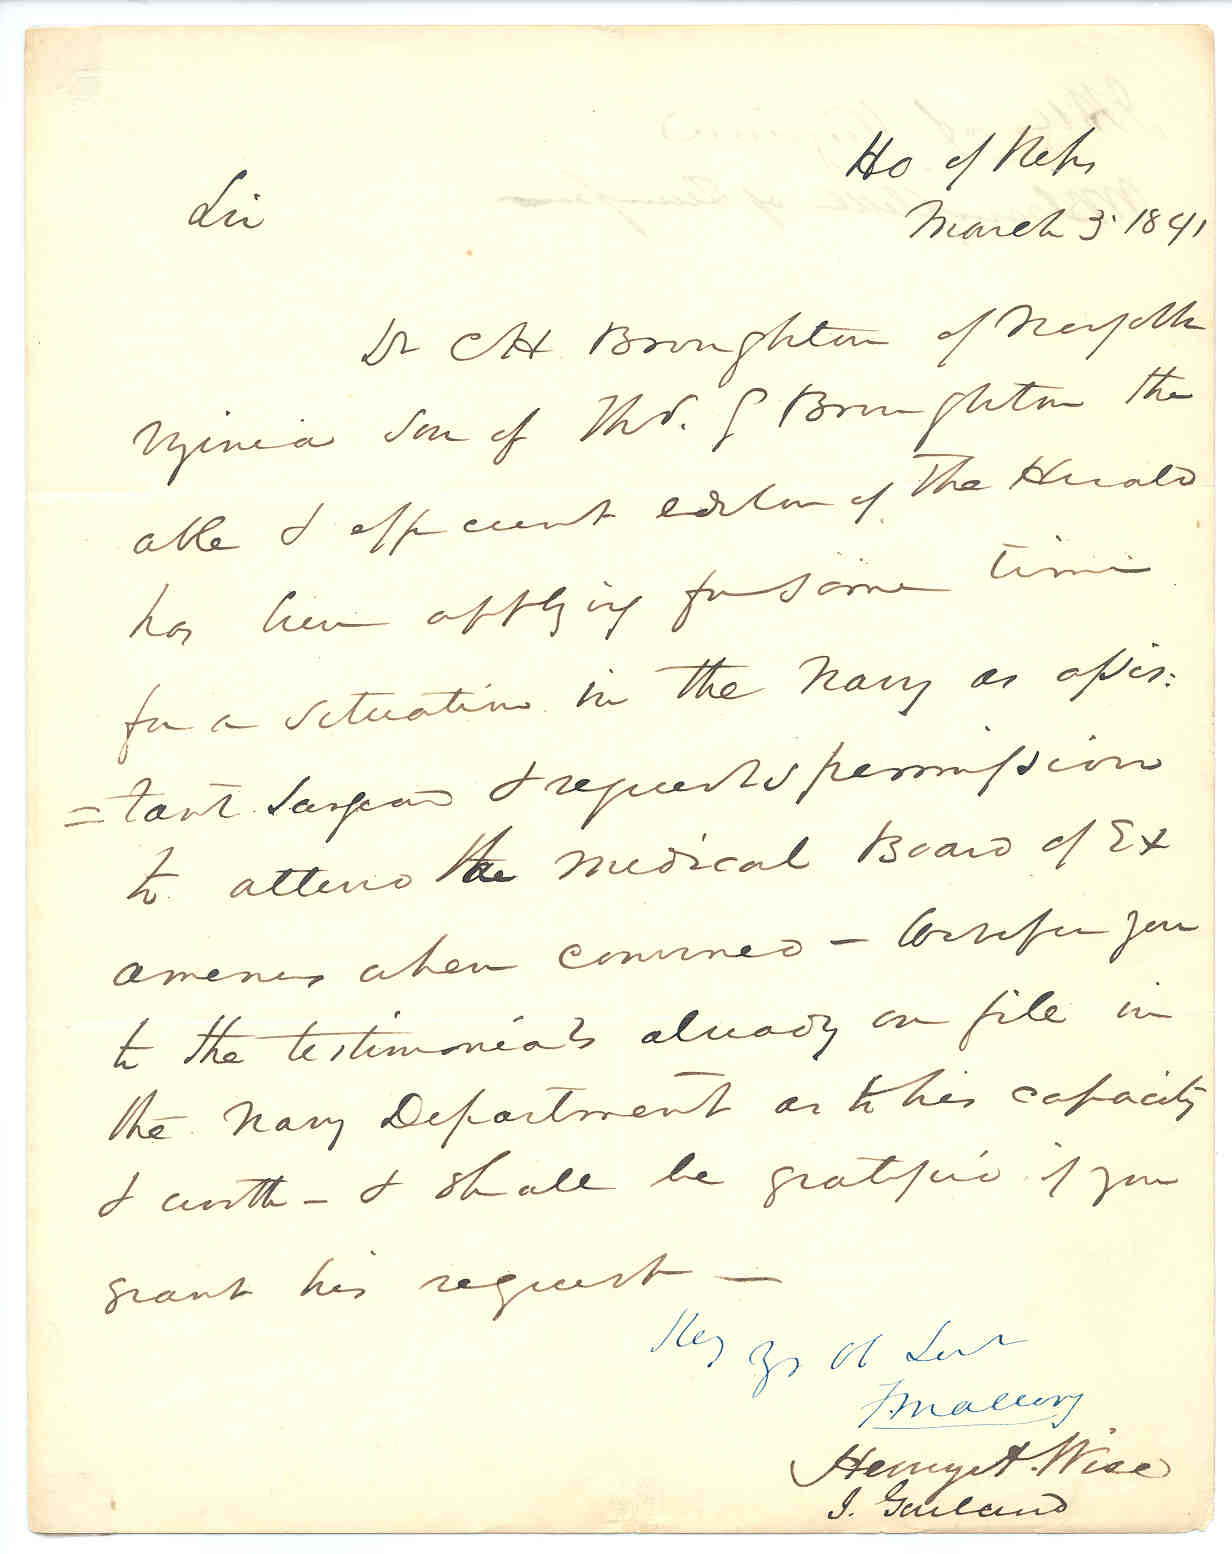 Ho of Reps
Sir
March 3. 1841
Dr C H Broughton of Norfolk
Virginia son of Tho.s G Broughton the
able & efficient editor of The Herald
has been applying for some time
for a situation in the Navy as assis:
=tant surgeon & requests permission
to attend the Medical Board of Ex
aminers when convened – We refer you
to the testimonials already on file in
the Navy Department as to his capacity
& worth – & shall be gratified if you
grant his request —
Very yr Ob Servt
F. Mallory
Henry A. Wise
J. Garland